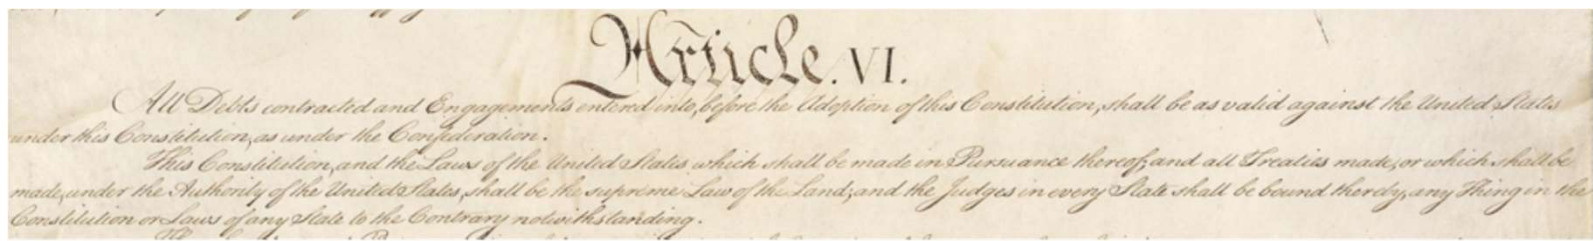 Article. VI.
All Debts contracted and Engagements entered into, before the Adoption of this Constitution, shall be as valid against the United States
under this Constitution, as under the Confederation.
This Constitution, and the Laws of the United States which shall be made in Pursuance thereof; and all Treaties made, or which shall be
made, under the Authority of the United States, shall be the supreme Law of the Land; and the Judges in every State shall be bound thereby, any Thing in the
Constitution or Laws of any State to the Contrary notwithstanding.